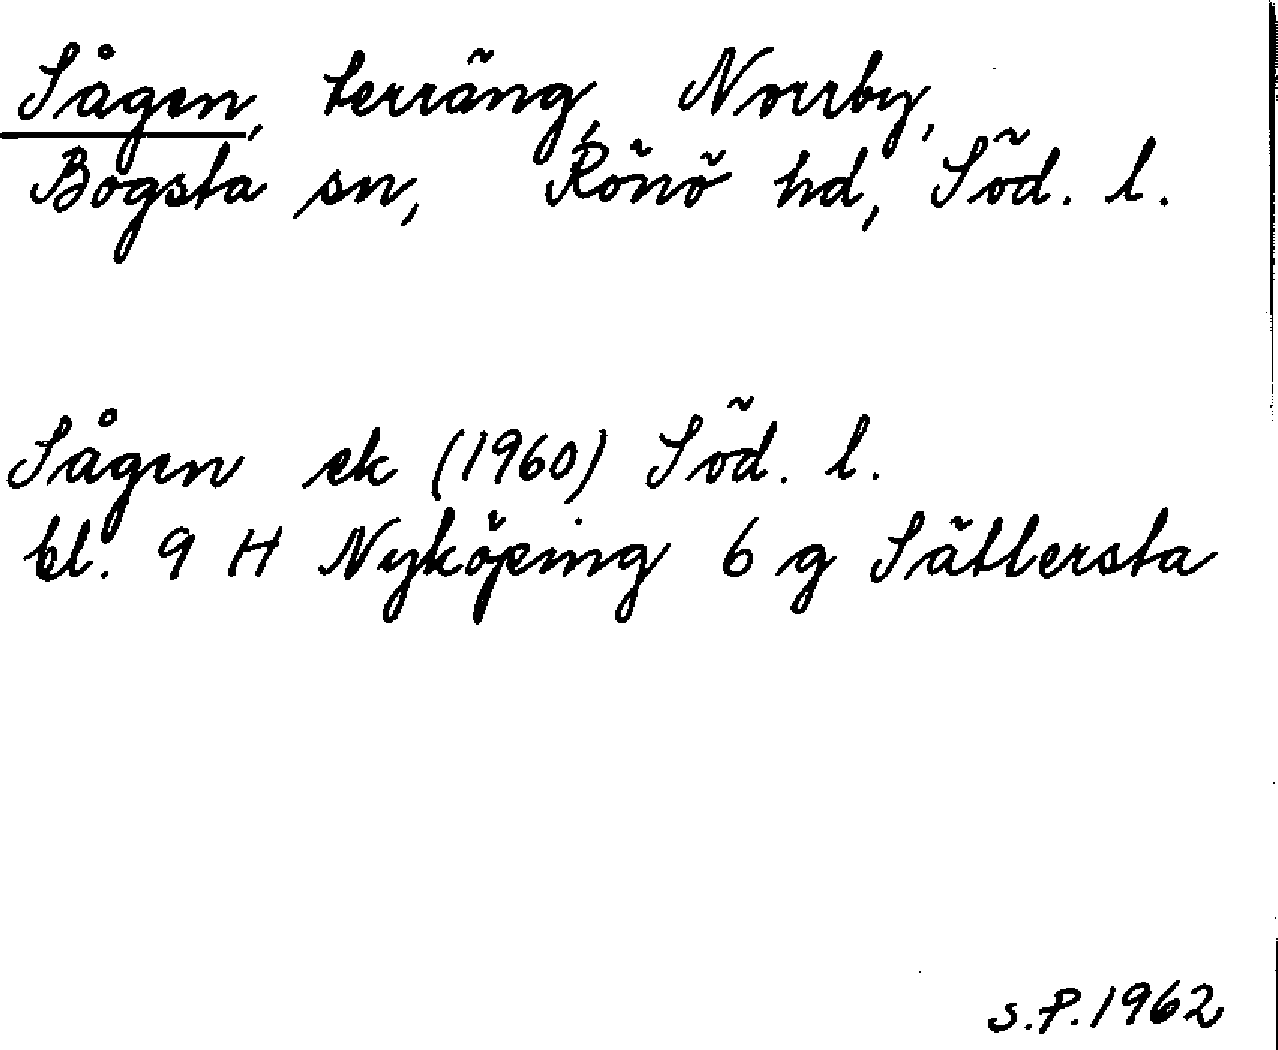 Sågen, terräng, Norrby,
Bogsta sn, Rönö hd, Söd. l.
Sågen ek (1960) Söd. l.
bl. 9 H Nyköping 6 g Sättersta
S.P. 1962